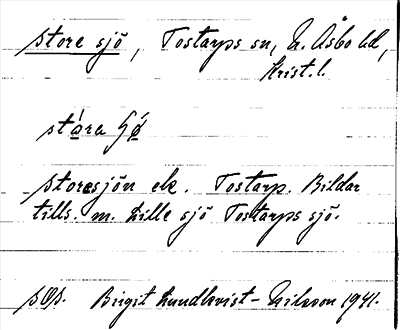 Store sjö, Tostarps sn, N. Åsbo hd,
Krist. l.
stóra Sjǿ
Storesjön ek. Tostarp. Bildar
tills. m. Lille sjö Tostarps sjö.
SOS. Birgit Lundkvist-Nilsson 1941.